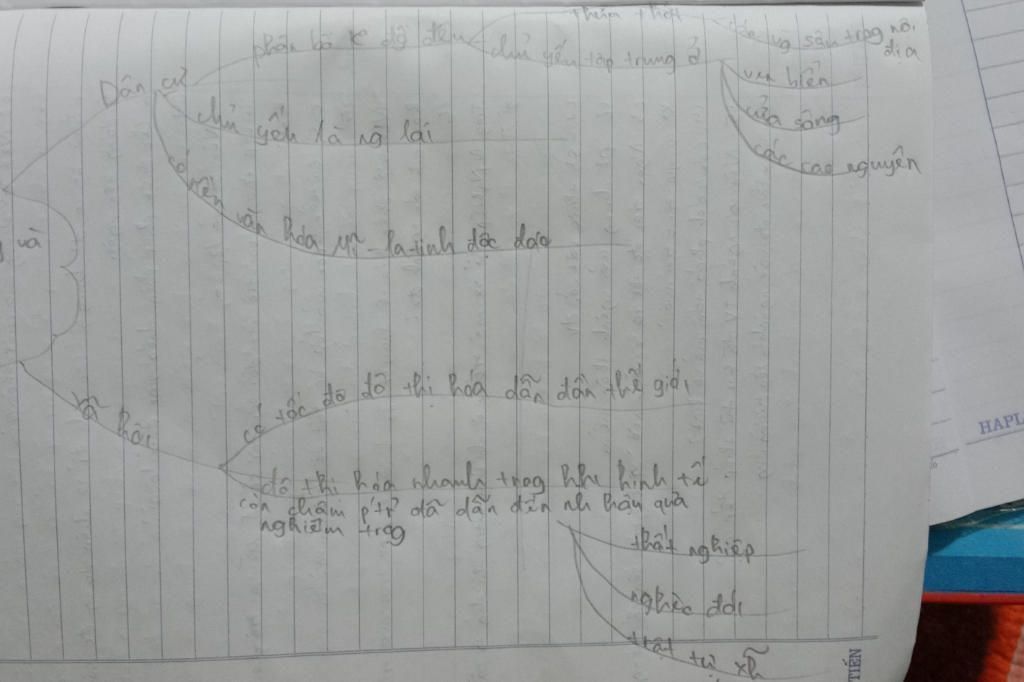 thưa thớt
các vg sâu trog nội
địa
phân bố k đồ đều
chủ yếu tập trung ở
ven biển
cửa sông
các cao nguyên
Dân cư
chủ yếu là ng lai
có nền văn hóa mĩ-la-tinh độc đáo
và
xã hội
có tốc độ đô thị hóa dẫn đần thế giới
đô thị hóa nhanh trog khi kinh tế
còn chậm p'tr' đã dẫn đến nh hậu quả
nghiêm trog
thất nghiệp
nghèo đói
trật tự xh
HAPL
TIẾN